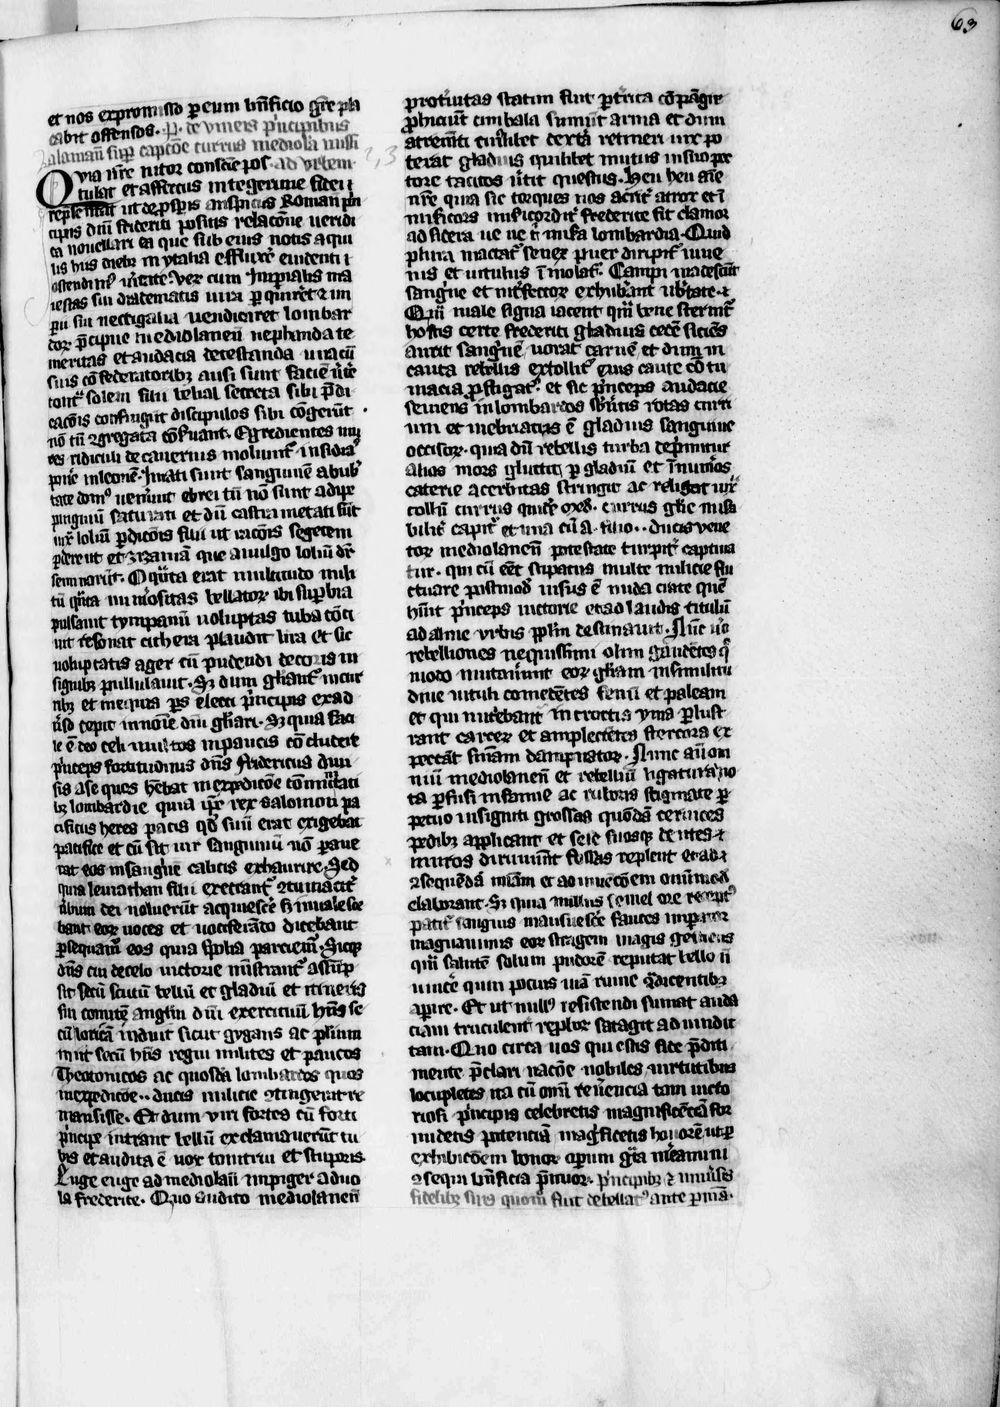 63
et nos expromisso p̱ eum bn̄ficio gr̄e pla
cabit offensos. P. de vineis p'ncipibus
alamanī sup̱ capcōe currus mediola missi
Quia nr̄e nitor consciē pos ad vitem
tulat et affectus integerime fidei i
tipis dnī frideriti positis relacōne veridi
ca novellari ea que sub eius notis a qui
bus hiis dieb3 in ytalia effluxer̄ evidenti i
ostendim' v'itate. Ver cum Imp̱ialis ma
iestas sui diadematis iura p̱quireret et im
p̱ii sui vectigalia vendicaret lombar
dor̄ p̄cipue mediolanen̄ nephanda te
meritas et audacia detestanda una cū
suis cōfederatorib3 ausi sunt faciē v'te
solem filii belial secreta sibi p̄di
cacōis confingūt discipulos sibi cōgerūt
nō tn̄ 9gregata cōs'vant. Egredientes mu
res ridiculi de cavernis moliunt' insidias
ponē in leonē. Inrati sunt sanguinē ab ub'
tate dom' venerunt ebrei tn̄ nō sunt adipe
pinguiū saturati et dū castra metati sūt
iux̄ loliū p̱dicōis filii ut racōis segetem
p̱derēt et zizaniā que a vulgo loliū dr̄
seminarēt. O q̄nta erat multitudo mili
tū q̄nta numerositas bellator̄ ibi sup̱bia
pulsavit tympanū voluptas tuba cōci
nit resonat cithera plaudit lira et sic
voluptatis ager cū pudendi decoris in
signib3 pullulavit. S3 dum gl'iant' in cur
rib3 et in equis p̱s electi p'ncipis ex ad
v'so cepit in noīe dnī gl'iari. S3 quia faci
le ē deo celi multos in paucis cōcludere
p'nceps fortitudinis dn̄s Fridericus divi
sis a se quos h̄ebat in expedicōe cōmilitati
b3 lombardie quia ip̱e rex salomon pa
cificus heres pacis qd' suū erat exigebat
pacifice et cū sit vir sanguinū nō pave
rat eos in sang'ne calicis exhaurire. Sed
quia leviathan filii execrant' 9tumacit'
v'bum dei noluerūt acquiescē s3 invalesce
bant eor̄ voces et vociferādo dicebant
p̱sequam' eos quia sp̄olia parciem'. Sicq3
dn̄s cui de celo victorie ministrant' assūp
sit secū scutū bellū et gladiū et itineris
sui comitē anglm̄ dnī exercituū hn̄s se
cū loricā induit sicut gygans ac p̱lium
init secū hn̄s regni milites et paucos
Theotonicos ac quosdā lombardos quos
in expedicōe . . ducis milicie 9tingerit re
mansisse. Et dum viri fortes cū forti
p'ncipe intrant bellū exclamaverūt tu
bis et audita ē vox tonitrui et stuporis.
Euge euge ad mediolan̄ impiger advo
la frederice. Quo audito mediolanen̄
protervitas statim fuit p̱territa cōpāgie
p̱hiciūt cimbala sumūt arma et dum
terat gladius quilibet mutus in suo pec
tore tacitos v'tit questus. Heu heu aīe
nr̄e quia sic torques nos acrit' atrox et ī
misericors misericordit' frederice sit clamor
ad sidera ve ve t' misera lombardia. Quid
plura mactat' senex puer diripit' iuve
nis et vitulus īmolat'. Campi madescūt
sang'ne et int'fector exhub'ant ub'tate. et
Qm̄ male signa iacent qm̄ bene sternit'
hostis certe frederici gladius cedē siciēs
aurit sang'nē vorat carnē et dum in
cauta rebellis extollit' eius caute cōtu
macia p̱fligat'. et sic p'nceps audacie
seviens in lombardos s'pentis rotas curri
um et inebriatus ē gladius sanguine
occisor̄. quia dū rebellis turba dep̱rimitur
alios mors glutit p̱ gladiū et īnum'os
caterie acerbitas stringit ac religat iux̄
collū currus quatē med. currus gl'ie misa
bilit' capit' et una cū a. filio . . ducis vene
tor̄ mediolanen̄ potestate turpit' captiva
tur. qui cū eēt stipatus multe milicie flu
ctuare postmod' visus ē nuda ciate quē
hūit p'nceps victorie et ad laudis titulū
ad alme urbis pplm̄ destinavit. Nūc v'o
rebelliones nequissimi olim gaudētes q'
modo mutaverunt eor̄ gl'iam in similitu
dine vituli comedētes fenū et paleam
et qui nut'ebant' in croceis yma p̱lust
rant carcer̄ et amplectētes stercora ex
pectāt sniam dampnator̄. Nunc aūt om
niū mediolanen̄ et rebelliū ligatura no
ta p̱fusi infamie ac ruboris stigmate p̱
petuo insigniti grossas quōdā cervices
pedib3 applicant et seie suosq3 dentes et
muros diruūnt fossas replent et ad
9sequēdā mīam et ad inventōem onū med'
elaborant. S3 quia nullus semel ore recept'
patit' sanguis mansuescē fauces imp̱ator
magnanimis eor̄ stragem magis gerens
qm̄ salutē solum pudorē reputat bello nī
vincē quin pocius viā ruine q'dicentib3
apire. Et ut null' resistendi sumat auda
ciam truculent' replor̄ satagit ad vindic
tam. Quo circa vos qui estis fide p̄diti
mente p̄clari nacōe nobiles virtutibus
locupletes ita cū omī rev'encia tam victo
riosi p'ncipis celebretis magnificēciā stu
videtis potenciā mag'ficetis honorē ut p̱
exhibicōem bonor̄ op̱um gr̄a mereamini
9sequi bn̄ficia p̄tiuor̄. p'ncipib3 et univ'sis
fidelib3 suis quom̄ fuit debellat' ante p̱mā.